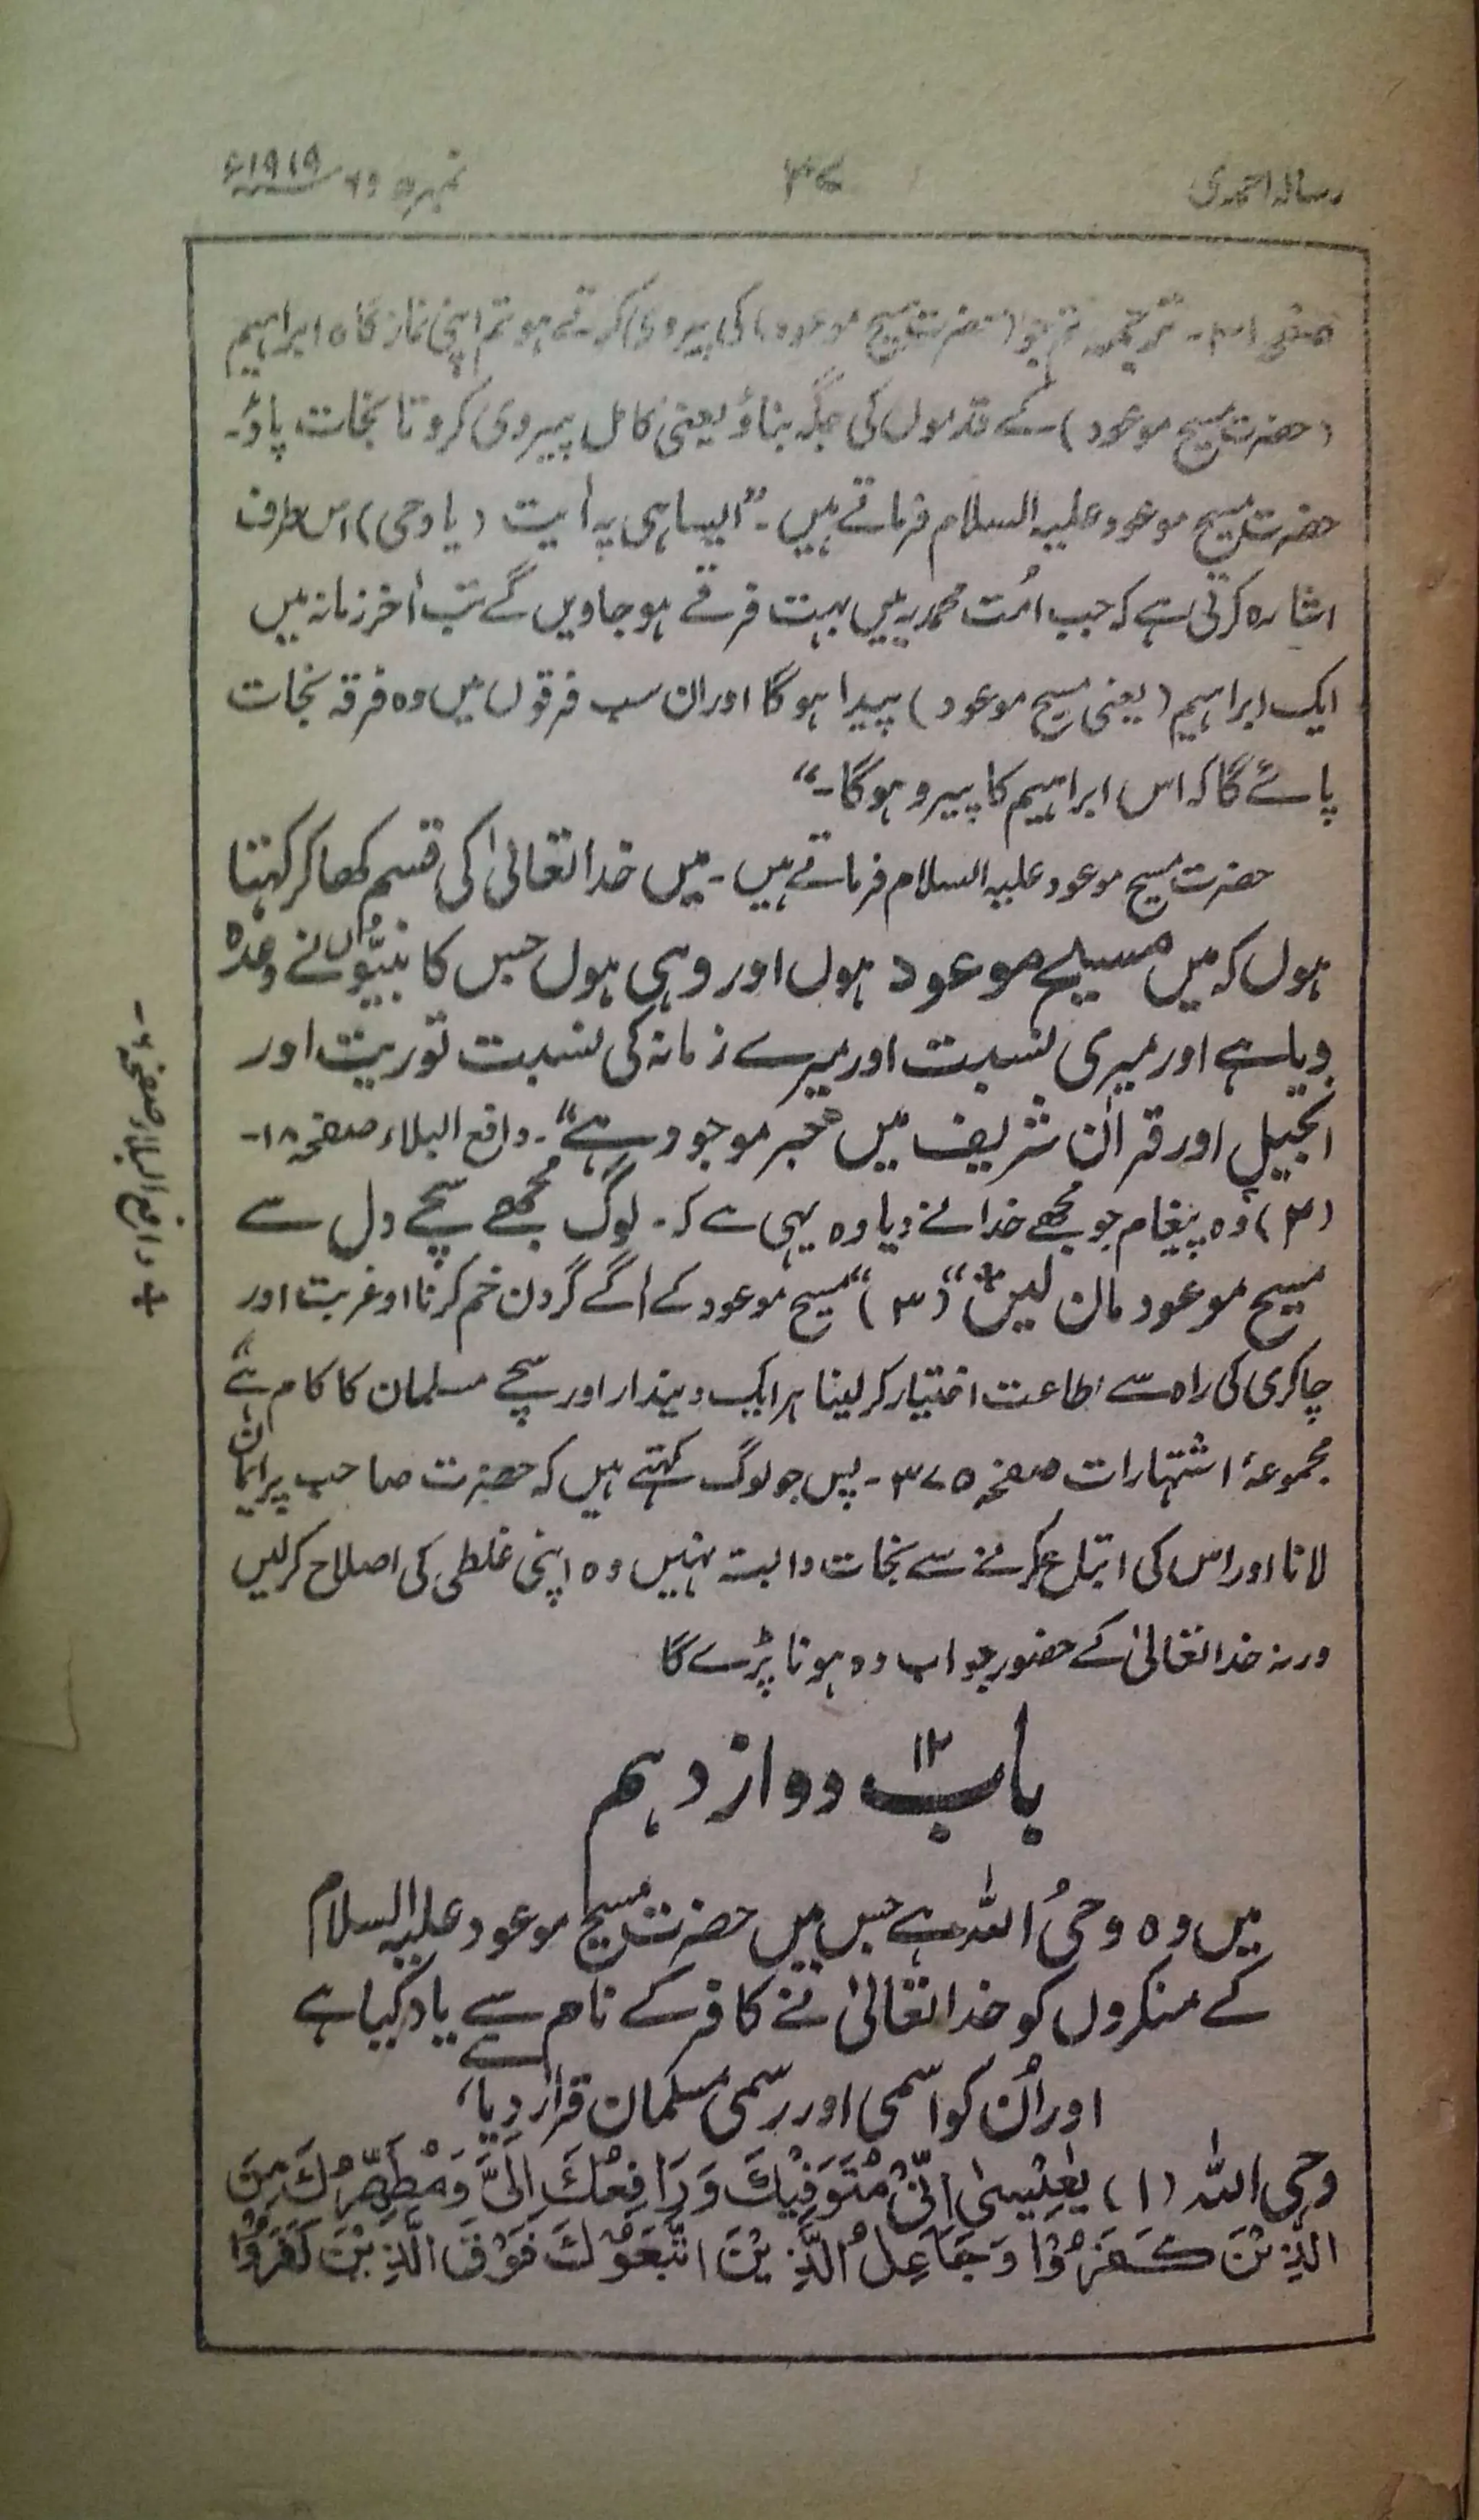 رسالہ احمدی
۳۷
نمبر ۵ و ۶ ۱۹۱۹ء
صفحہ ۳۱۔ ترجمہ۔ تم جو (حضرت مسیح موعود) کی پیروی کرتے ہو تم اپنی نماز گاہ ابراہیم
(حضرت مسیح موعود) کے قدموں کی جگہ بناؤ یعنی کامل پیروی کرو تا نجات پاؤ۔
حضرت مسیح موعود علیہ السلام فرماتے ہیں۔ "ایسا ہی یہ اٰیت (یا وحی) اس طرف
اشارہ کرتی ہے کہ جب اُمت محمدیہ میں بہت فرقے ہو جاویں گے تب اٰخر زمانہ میں
ایک ابراہیم (یعنی مسیح موعود) پیدا ہوگا اور ان سب فرقوں میں وہ فرقہ نجات
پائے گا کہ اس ابراہیم کا پیرو ہوگا۔"
حضرت مسیح موعود علیہ السلام فرماتے ہیں۔ میں خدا تعالیٰ کی قسم کھا کر کہتا
ہوں کہ میں مسیح موعود ہوں اور وہی ہوں جس کا نبیّوں نے وعدہ
دیا ہے اور میری نسبت اور میرے زمانہ کی نسبت توریت اور
انجیل اور قراٰن شریف میں خبر موجود ہے"۔ دافع البلاء صفحہ ۱۸۔
(۲) وہ پیغام جو مجھے خدا نے دیا وہ یہی ہے کہ۔ لوگ مجھے سچے دل سے
مسیح موعود مان لیں+" (۳) "مسیح موعود کے اٰگے گردن خم کرنا اور غربت اور
چاکری کی راہ سے اطاعت اختیار کر لینا ہر ایک دیندار اور سچے مسلمان کا کام ہے"
مجموعۂ اشتہارات صفحہ ۳۷۵۔ پس جو لوگ کہتے ہیں کہ حضرت صاحب پر ایمان
لانا اور اس کی اتباع کرنے سے نجات وابستہ نہیں وہ اپنی غلطی کی اصلاح کر لیں
ورنہ خدا تعالیٰ کے حضور جواب دہ ہونا پڑے گا
باب ۱۲ دوازدہم
میں وہ وحیُ اللہ ہے جس میں حضرت مسیح موعود علیہ السلام
کے منکروں کو خدا تعالیٰ نے کافر کے نام سے یاد کیا ہے
اور اُن کو اسمی اور رسمی مسلمان قرار دیا،
وحی اللہ (۱) یٰعِیْسیٰ اِنِّیْ مُتَوَفِّیْکَ وَ رَافِعُکَ اِلَیَّ وَ مُطَهِّرُکَ مِنَ
الَّذِیْنَ کَفَرُوْا وَ جَاعِلُ الَّذِیْنَ اتَّبَعُوْکَ فَوْقَ الَّذِیْنَ کَفَرُوْا
+ دافع البلاء صفحہ ۶۔